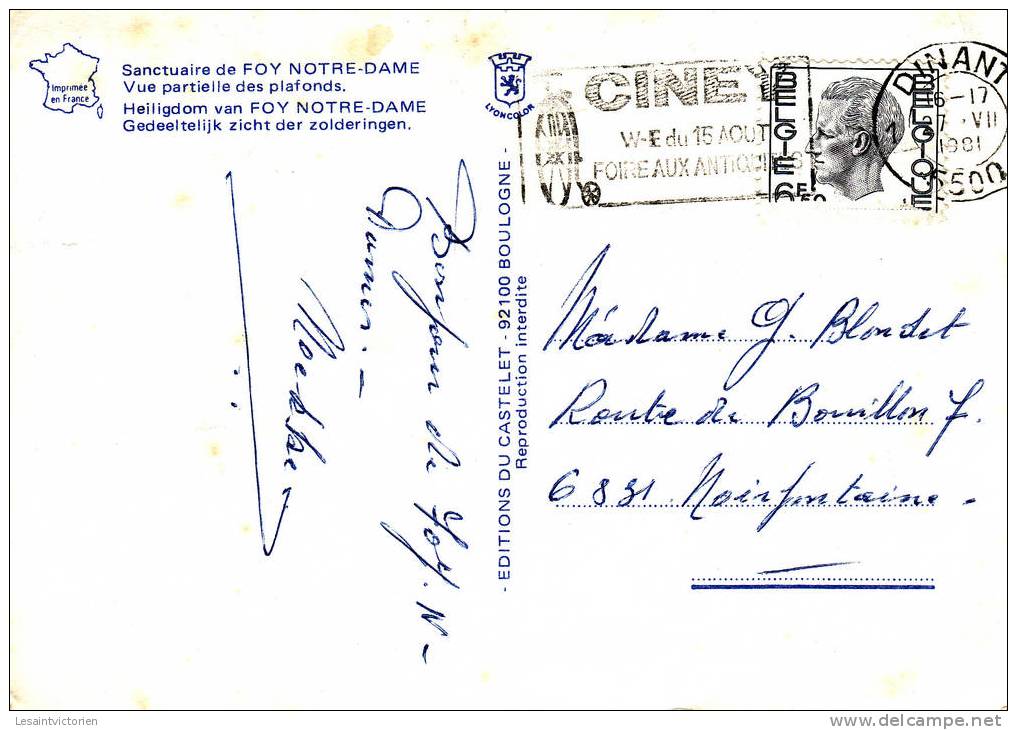 Imprimée
en France
Sanctuaire de FOY NOTRE-DAME
Vue partielle des plafonds.
Heiligdom van FOY NOTRE-DAME
Gedeeltelijk zicht der zolderingen.
LYONCOLOR
CINEY
W-E du 15 AOUT
FOIRE AUX ANTIQUITES
BELGIE
BELGIQUE
6F50
DINANT
16-17
27 · VII
1981
5500
- EDITIONS DU CASTELET - 92100 BOULOGNE -
Reproduction interdite
Bonjour de Foy. N-
Dame. -
Madame G. Blondet
Route de Bouillon 7.
6831 Noirfontaine -
Lesaintvictorien
delcampe.net